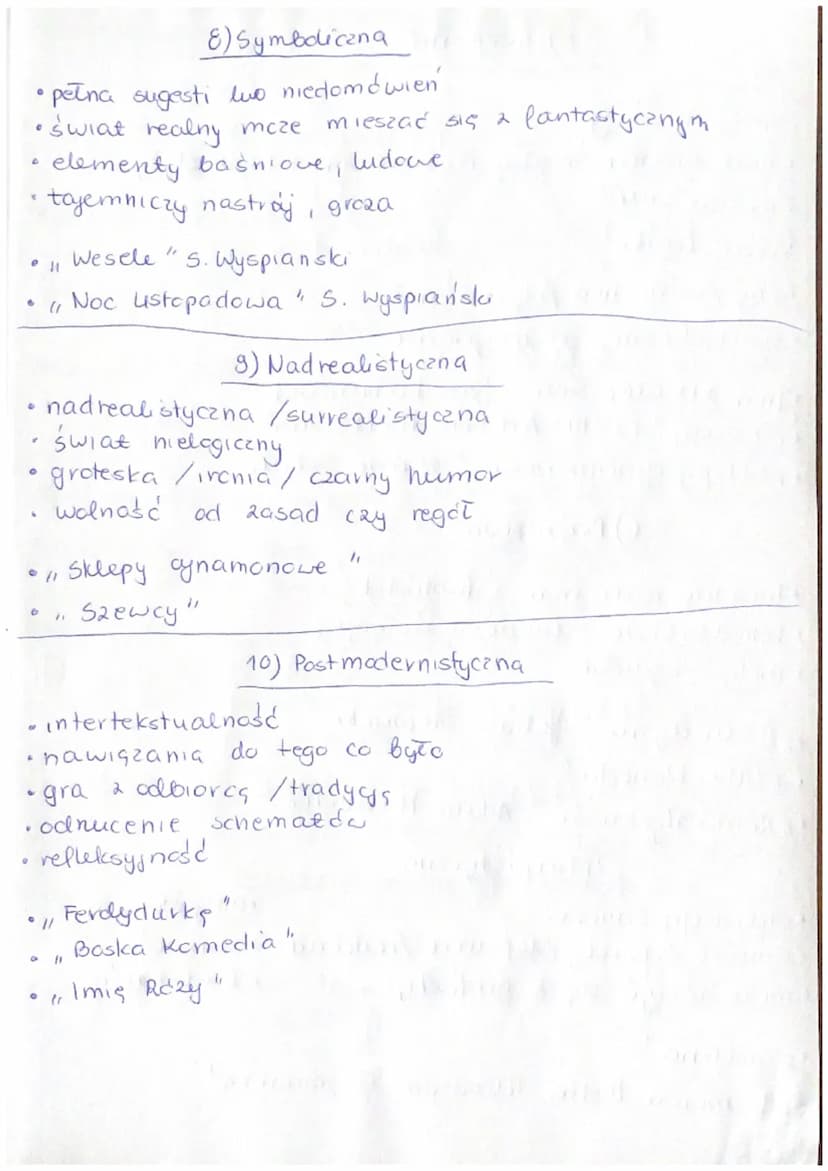 8) Symboliczna
• pełna sugesti lub niedomówień
• świat realny może mieszać się z fantastycznym
• elementy baśniowe, ludowe
• tajemniczy nastrój, groza
• „Wesele" S. Wyspiański
• „Noc Listopadowa" S. Wyspiański
9) Nadrealistyczna
• nadrealistyczna / surrealistyczna
• świat nielogiczny
• groteska / ironia / czarny humor
• wolność od zasad czy reguł
• „Sklepy cynamonowe"
• „Szewcy"
10) Postmodernistyczna
• intertekstualność
• nawiązania do tego co było
• gra z odbiorcą / tradycją
• odrzucenie schematów
• refleksyjność
• „Ferdydurkę"
• „Boska Komedia"
• „Imię Róży"